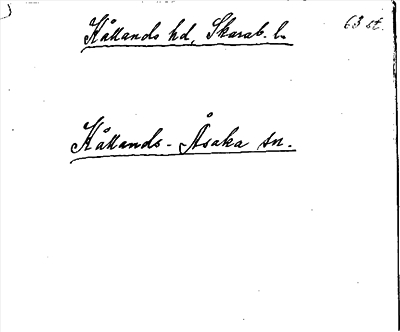 Kållands hd, Skarab. l.
63 st.
Kållands-Åsaka sn.